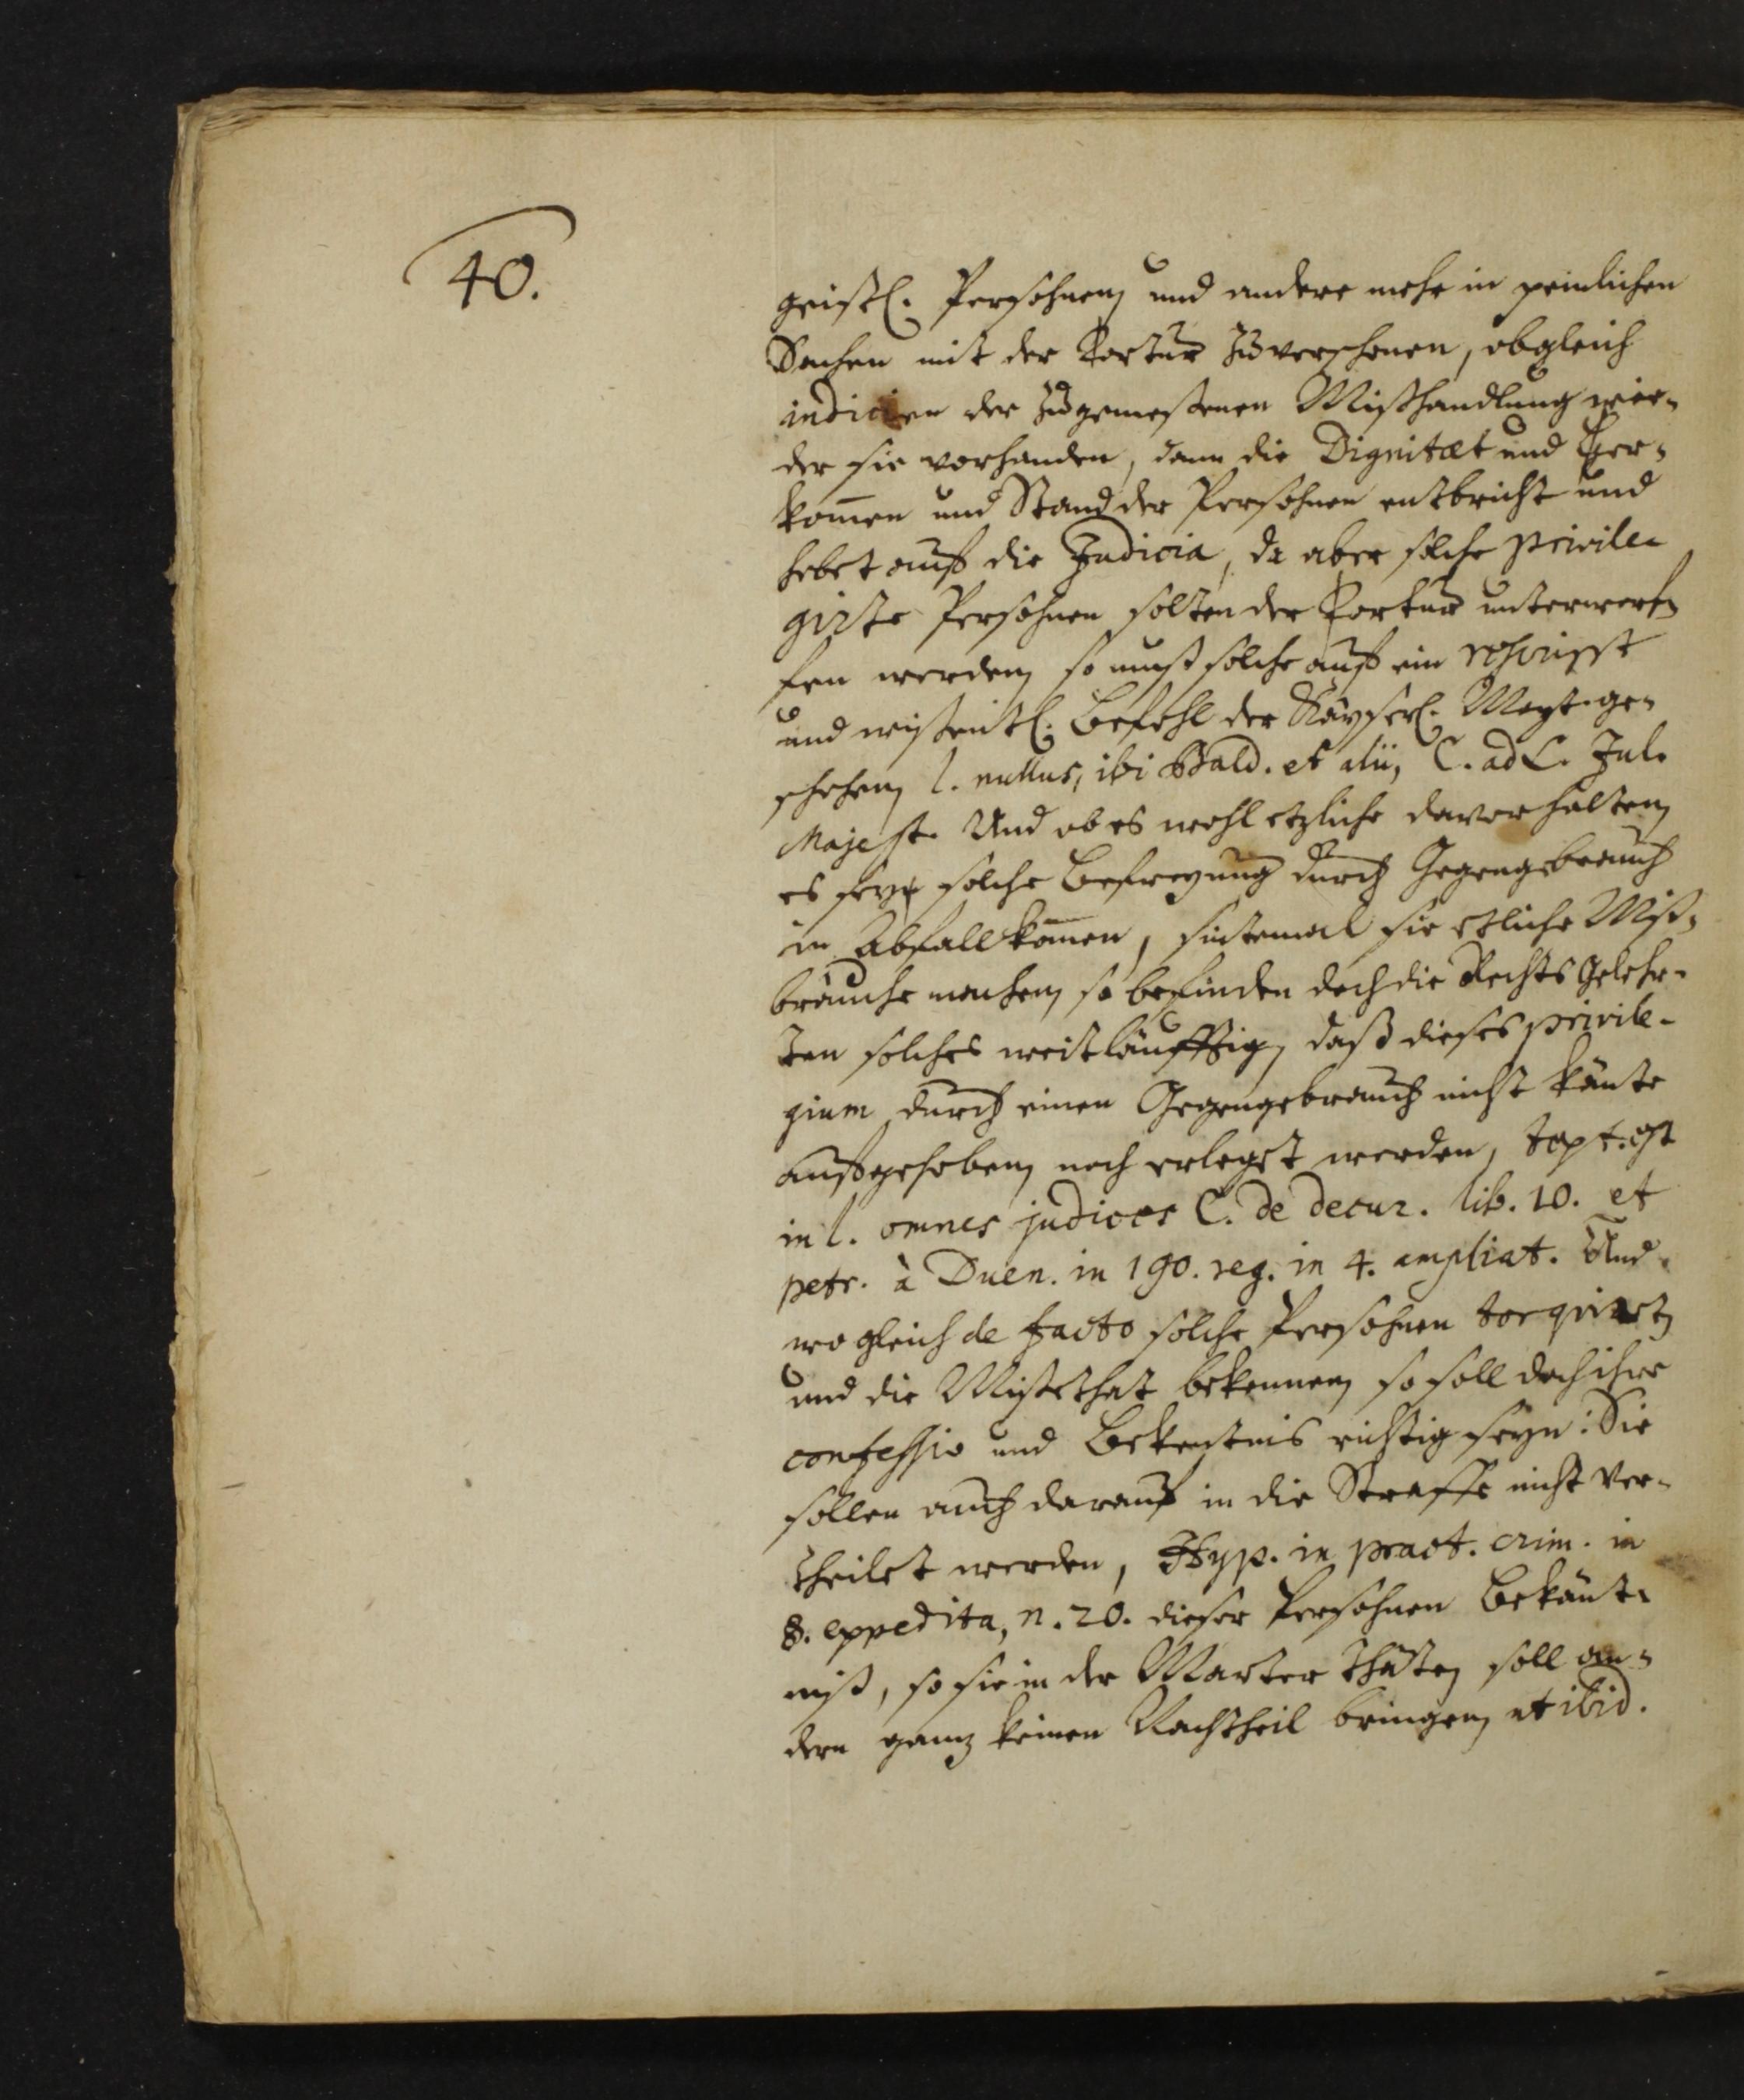 40.
geistl. Persohnen und andere mehr in peinlichen
Sachen mit der Tortur zuverschonen, obgleich
indicien der zugemeßenen Mißhandlung wie-
der sie vorhanden, dann die Dignitæt und Her-
kom̅en und Stand der Persohnen entbricht und
hebet auff die Indicia, da aber solche privile-
girte Persohnen solten der Tortur unterworf-
fen werden, so muß solche auff ein
und wißentl. Befehl der Käyserl. Mayt. ge-
schehen, l. nullus, ibi Bald. et alii, C. ad L. Jul.
Majest. Und ob es wohl etzliche davor halten,
es seye solche Befreyung durch Gegengebrauch
in Abfall kom̅en, sintemal sie etliche Miß-
bräuche machen, so befinden doch die Rechts Gelehr-
ten solches weitläufftig, daß dieses privile-
gium durch einen Gegengebrauch nicht könte
auffgehoben, noch erleget werden,
in l. omnes judices C. de decur. lib. 10. et
petr. à Duen. in 190. reg. in 4. ampliat. Und
wo gleich de facto solche Persohnen torquiert,
und die Mißethat bekennen, so soll doch ihre
confessio und Bekentnis richtig seyn: Sie
sollen auch darauf in die Straffe nicht ver-
theilet werden, Hyp. in pract. crim. in
§. expedita, n. 20. dieser Persohnen Bekänt-
niß, so sie in der Marter thäten, soll an-
dern ganz keinen Nachtheil bringen, et ibid.